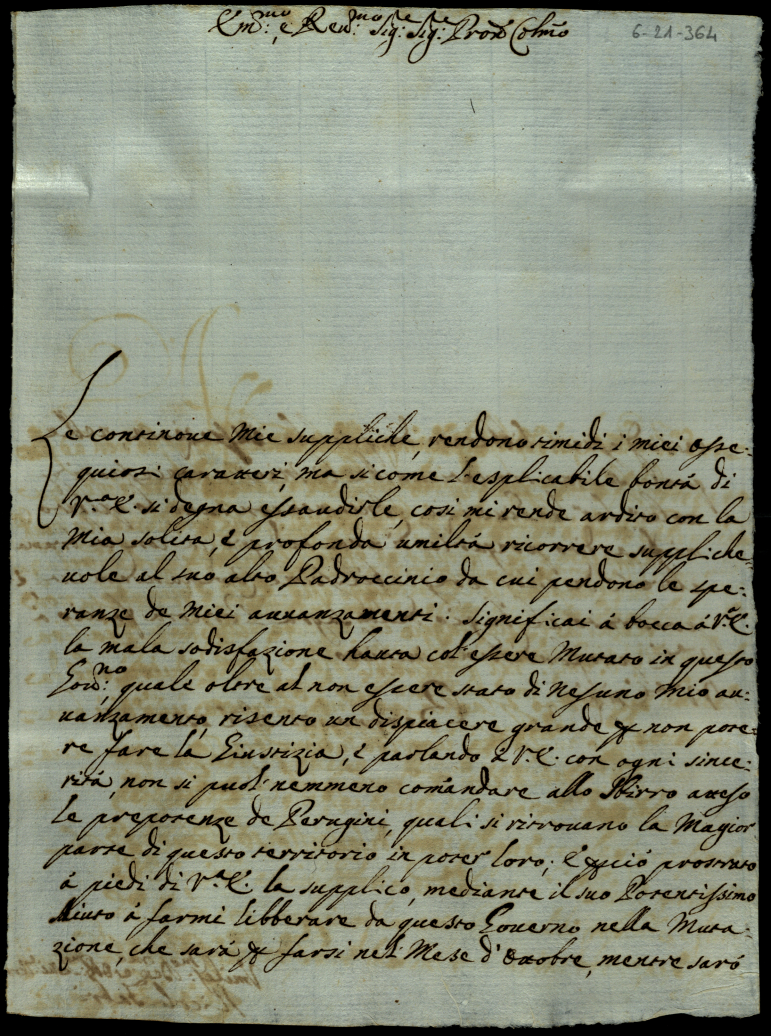 Em.mo e Reu.mo Sig.re Sig.re Pron Colmo
6-21-364
Le continoue Mie suppliche, rendono timidi i miei osse-
quiosi caratteri, ma si come l'esplicabile bontá di
V.ra E. si degna essaudirle, cosi mi rende ardito con la
Mia solita, e profonda umiltá ricorrere suppliche-
uole al suo alto Padroccinio da cui pendono le spe-
ranze de Miei auuanzamenti: significai á bocca á V.E.
la mala sodisfazione hauta col' essere Mutato in questo
Gou.no, quale oltre al non essere stato di Nesuno Mio au-
uanzamento, risento un dispiacere grande p non pote-
re fare la Giustizia, e parlando á V.E. con ogni since-
ritá, non si puol' nemmeno comandare allo Sbirro atteso
le prepotenze de Perugini, quali si ritrouano la Magior
parte di questo territorio in poter loro; E p ció prostrato
á piedi di V.ra E. la supplico, mediante il suo Potentissimo
Aiuto á farmi libberare da questo Gouerno nella Muta-
zione, che sará p farsi nel Mese d' Ottobre, mentre saró